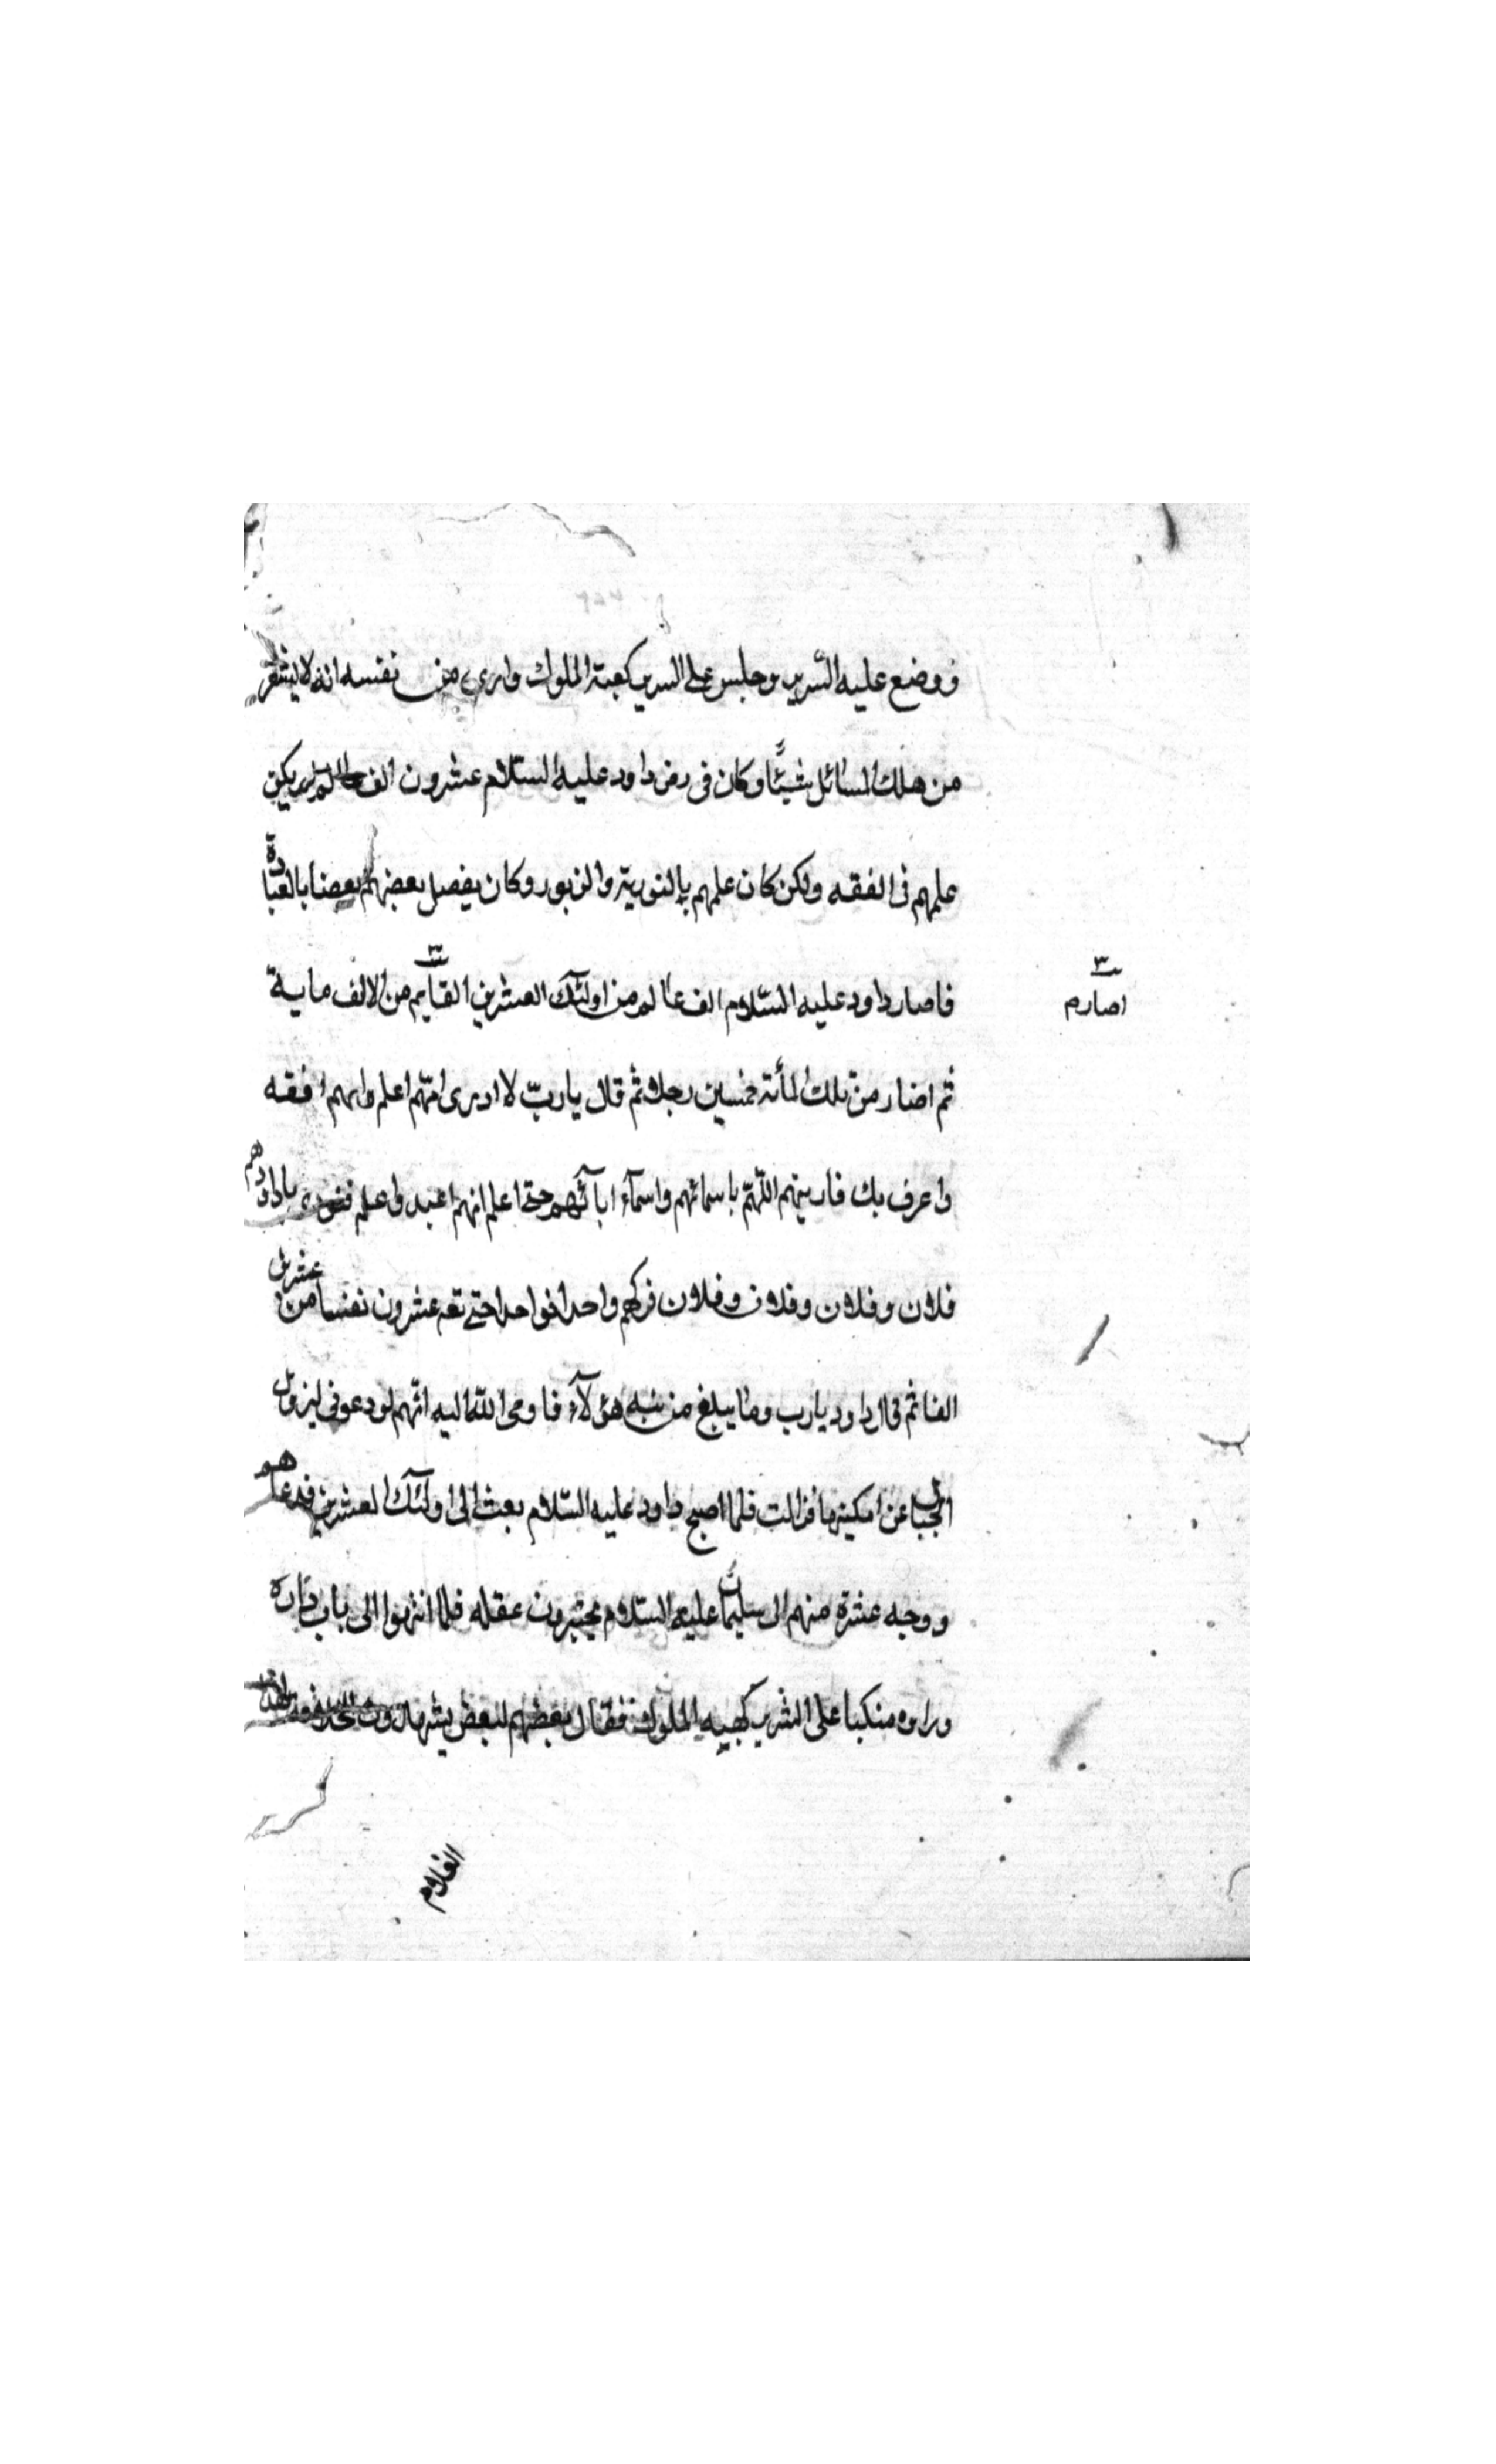 ووضع عليه السرير وجلس على السرير كهيئة الملوك وارى من نفسه انه لا يشعر
من هلك المسائل شيئًا وكان فى زمن داود عليه السلام عشرون الف عالم لم يكن
علمهم فى الفقه ولكن كان علمهم بالتورية والزبور وكان يفضل بعضهم بعضا بالعبادة
فاصار داود عليه السّلام الف عالم من اولئك العشرين الفا ثم من الالف ماية
اصارم
ثم اختار من تلك المأئة خمسين رجلا ثم قال يا ربّ لا ادرى ايّهم اعلم وايهم افقه
واعرف بك فارينهم اللّهمّ باسمائهم واسمآء ابآئهم حتى اعلم انهم اعبد واعلم فنودى يا داود هم
فلان وفلان وفلان وفلان فذكرهم واحدا فواحدا حتى تم عشرون نفسا من عشرين
الفا ثم قال داود يا رب وما يبلغ من هؤلآء فاوحى اللّه اليه انّهم لو دعونى ليزول
الجبال عن امكنتها فزالت فلما اصبح داود عليه السّلام بعث الى اولئك العشرين فدعاهم
ووجه عشرة منهم الى سليمان عليه السلام يختبرون عقله فلما انتهوا الى باب داره
وراوه متكيا على السرير كهيه الملوك فقال بعضهم لبعض
الغلام